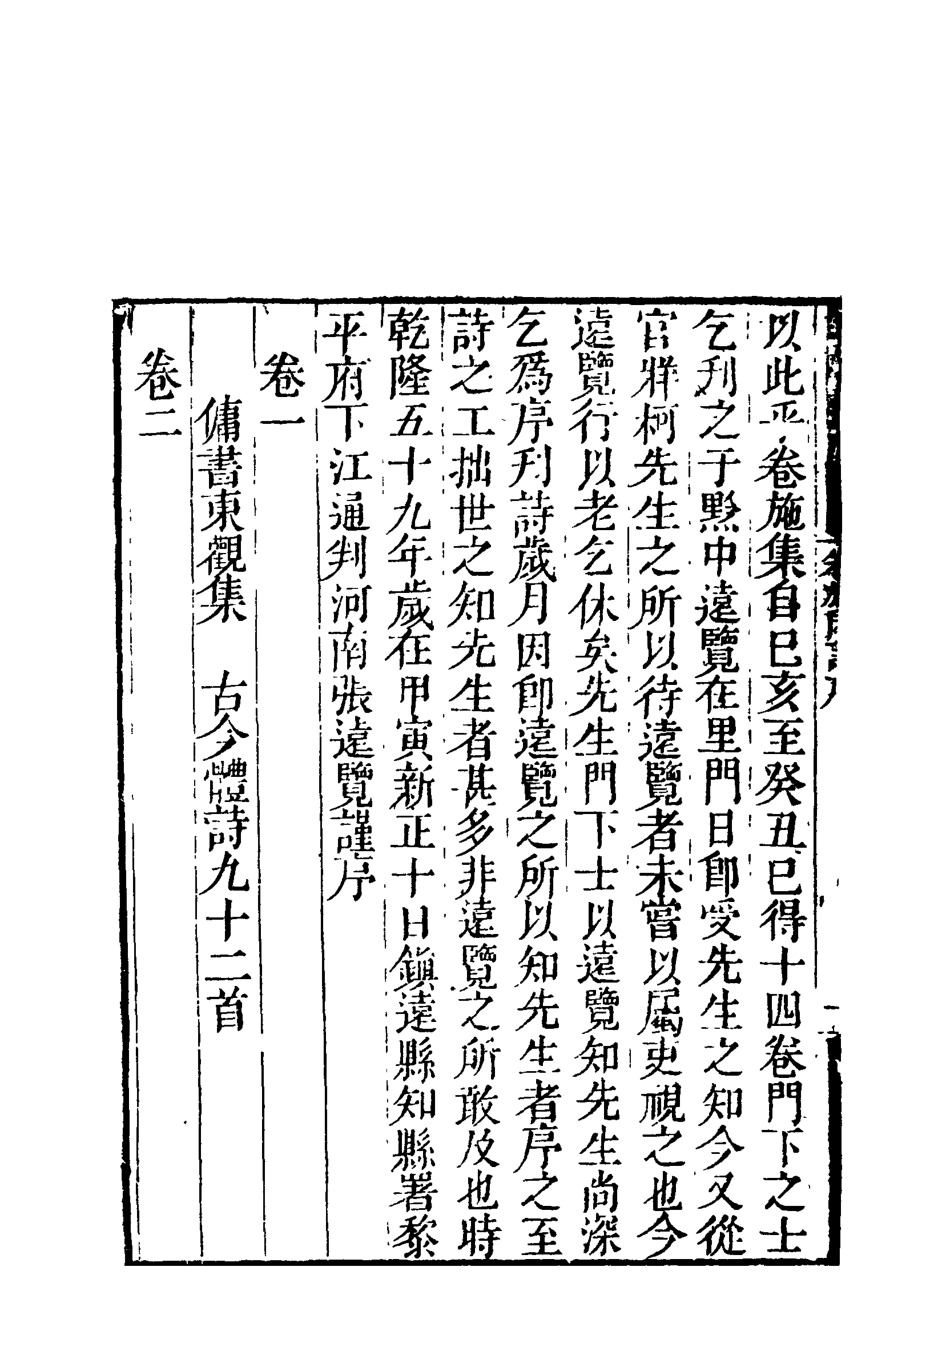 以此乎卷施集自巳亥至癸丑巳得十四卷門下之士
乞刋之于黔中遠覽在里門日卽受先生之知今又從
官牂柯先生之所以待遠覽者未嘗以屬吏視之也今
遠覽行以老乞休矣先生門下士以遠覽知先生尚深
乞爲序刋詩歲月因卽遠覽之所以知先生者序之至
詩之工拙世之知先生者甚多非遠覽之所敢及也時
乾隆五十九年歲在甲寅新正十日鎮遠縣知縣署黎
平府下江通判河南張遠覽謹序
卷一
傭書東觀集　古今體詩九十二首
卷二